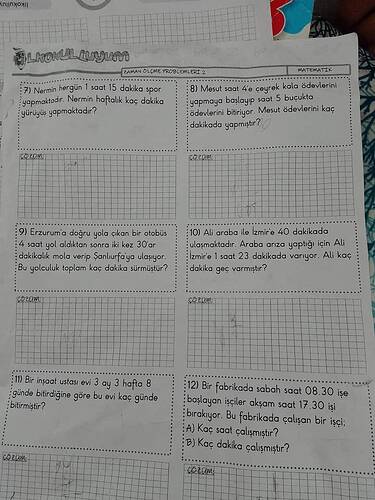 İLKOKULLUYUM
ZAMAN ÖLÇME PROBLEMLERİ 2
MATEMATİK
7) Nermin hergün 1 saat 15 dakika spor
yapmaktadır. Nermin haftalık kaç dakika
yürüyüş yapmaktadır?
8) Mesut saat 4'e çeyrek kala ödevlerini
yapmaya başlayıp saat 5 buçukta
ödevlerini bitiriyor. Mesut ödevlerini kaç
dakikada yapmıştır?
ÇÖZÜM:
ÇÖZÜM:
9) Erzurum'a doğru yola çıkan bir otobüs
4 saat yol aldıktan sonra iki kez 30'ar
dakikalık mola verip Şanlıurfa'ya ulaşıyor.
Bu yolculuk toplam kaç dakika sürmüştür?
10) Ali araba ile İzmir'e 40 dakikada
ulaşmaktadır. Araba arıza yaptığı için Ali
İzmir'e 1 saat 23 dakikada varıyor. Ali kaç
dakika geç varmıştır?
ÇÖZÜM:
ÇÖZÜM:
11) Bir inşaat ustası evi 3 ay 3 hafta 8
günde bitirdiğine göre bu evi kaç günde
bitirmiştir?
12) Bir fabrikada sabah saat 08.30 işe
başlayan işçiler akşam saat 17.30 işi
bırakıyor. Bu fabrikada çalışan bir işçi;
A) Kaç saat çalışmıştır?
B) Kaç dakika çalışmıştır?
ÇÖZÜM:
ÇÖZÜM: